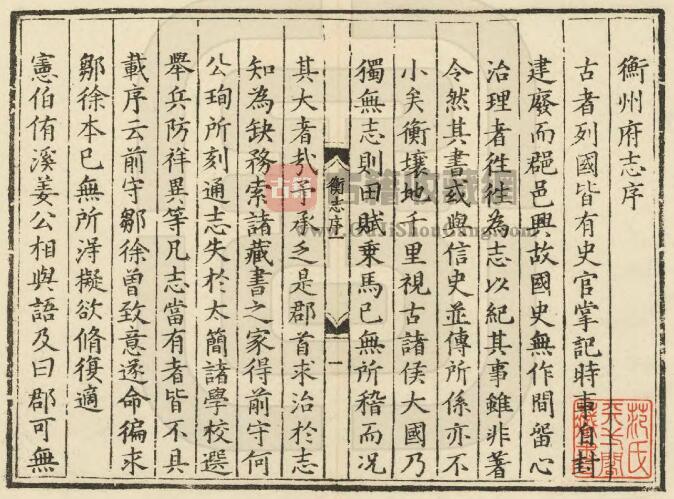 衡州府志序
古者列國皆有史官掌記時事自封
建廢而郡邑興故國史無作間留心
治理者徃徃為志以紀其事雖非著
令然其書或與信史並傳所係亦不
小矣衡壤地千里視古諸侯大國乃
獨無志則田賦乗馬已無所稽而况
衡志序
一
其大者㢤予承乏是郡首求治於志
知為缺務索諸藏書之家得前守何
公珣所刻通志失於太簡諸學校選
舉兵防祥異等凡志當有者皆不具
載序云前守鄒徐曾致意遂命徧求
鄒徐本已無所淂擬欲脩復適
憲伯侑溪姜公相與語及曰郡可無
范氏
天一閣
藏書
www.GuJiShouCang.com